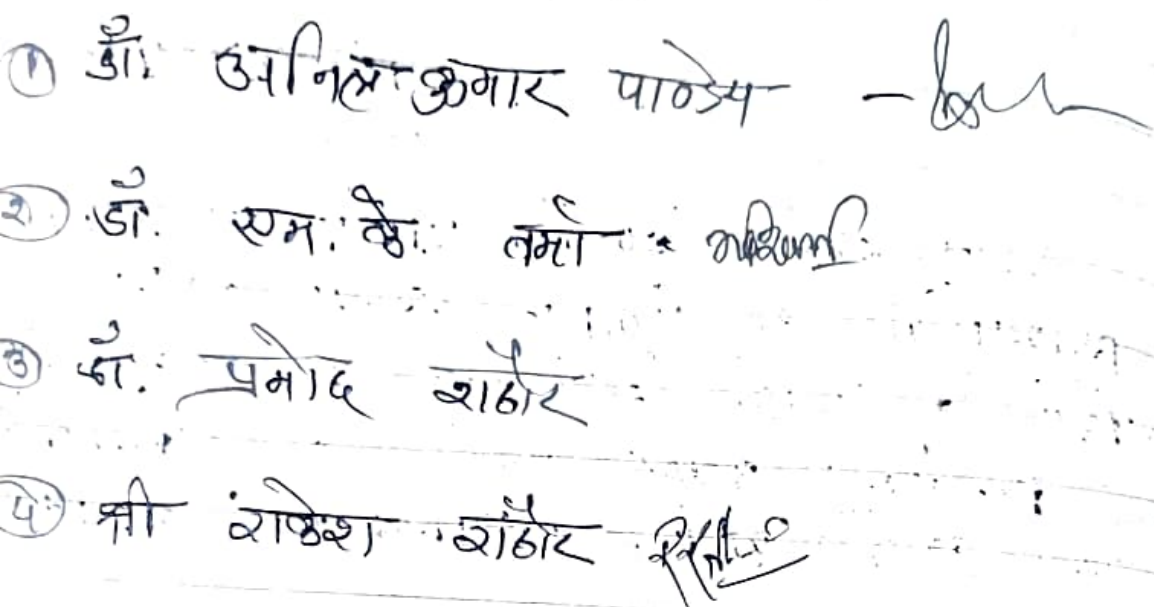 १ डॉ. अनिल कुमार पाण्डेय -
२ डॉ. एम. के. वर्मा
३ डॉ. प्रमोद राठौर
४ श्री राकेश राठौर